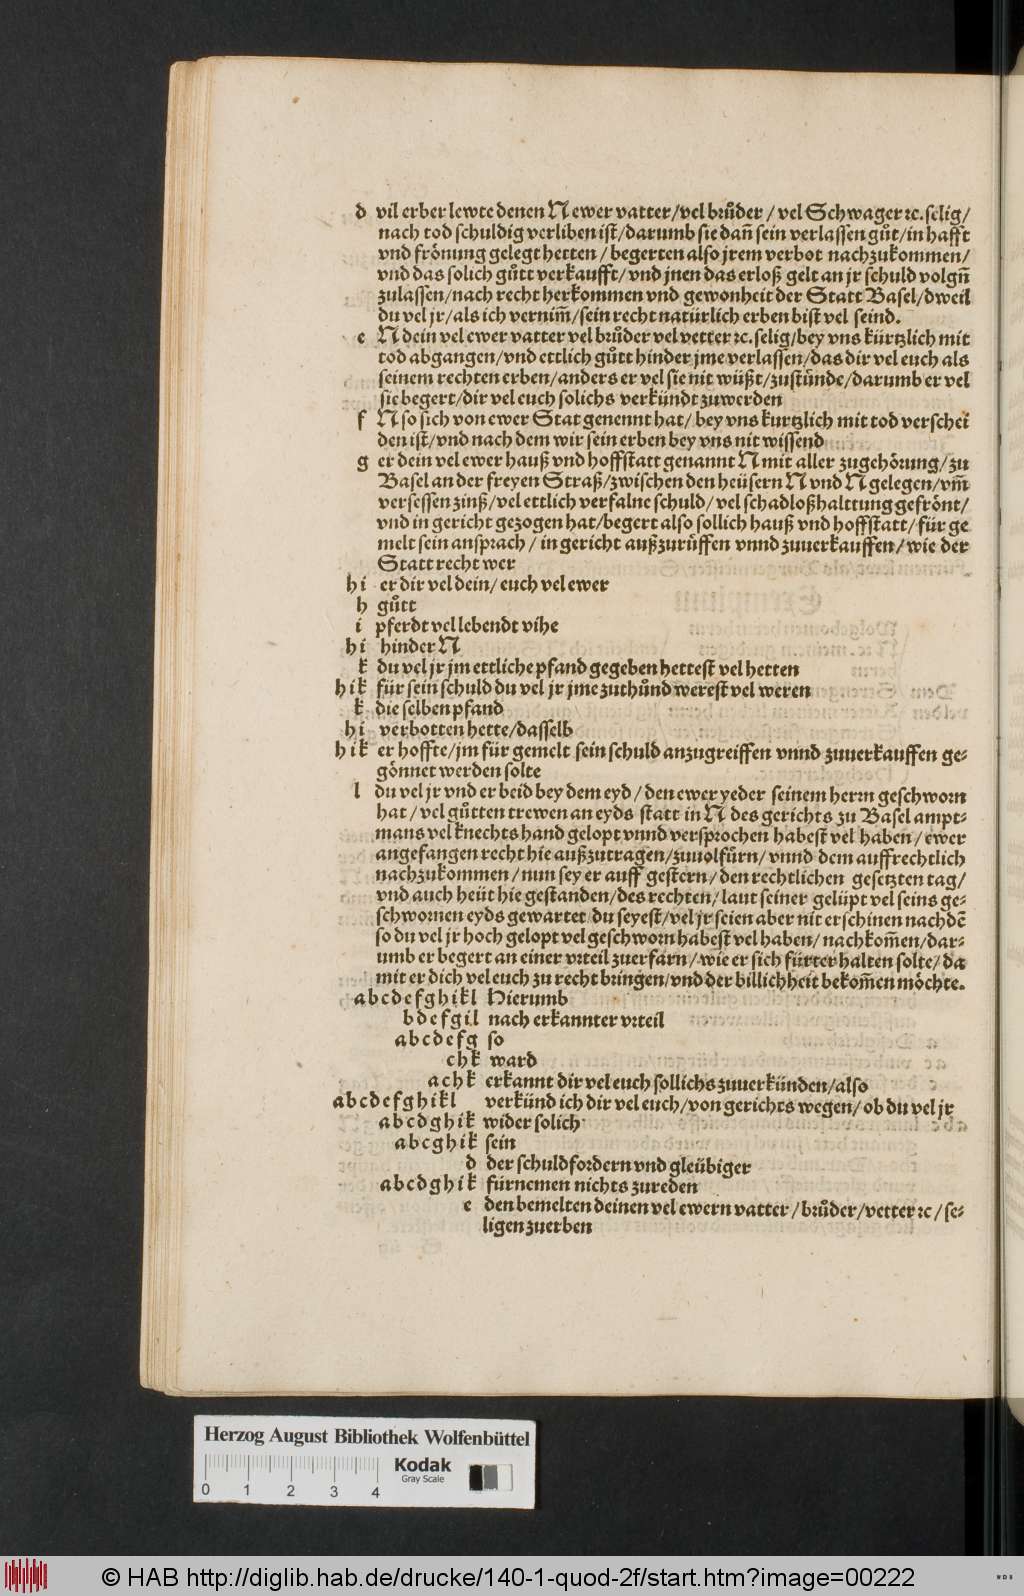 d vil erber lewte denen N ewer vatter/vel brůder / vel Schwager ꝛc. selig/
nach tod schuldig verliben ist/darumb sie dañ sein verlassen gůt/in hafft
vnd frönung gelegt hetten / begerten also jrem verbot nachzukommen/
vnd das solich gůtt verkaufft/vnd jnen das erloß gelt an jr schuld volgñ
zulassen/nach recht herkommen vnd gewonheit der Statt Basel/dweil
du vel jr/als ich vernim̃/sein recht natürlich erben bist vel seind.
e N dein vel ewer vatter vel brůder vel vetter ꝛc. selig/bey vns kürtzlich mit
tod abgangen/vnd ettlich gůtt hinder jme verlassen/das dir vel euch als
seinem rechten erben/anders er vel sie nit wüßt/zustünde/darumb er vel
sie begert/dir vel euch solichs verkündt zuwerden
f N so sich von ewer Stat genennt hat/ bey vns kurtzlich mit tod verschei
den ist/vnd nach dem wir sein erben bey vns nit wissend
g er dein vel ewer hauß vnd hoffstatt genannt N mit aller zugehörung/zu
Basel an der freyen Straß/zwischen den heüsern N vnd N gelegen/vm̃
versessen zinß/vel ettlich verfalne schuld/vel schadloßhalttung gefrönt/
vnd in gericht gezogen hat/begert also sollich hauß vnd hoffstatt/für ge
melt sein ansprach / in gericht außzurüffen vnnd zuuerkauffen/wie der
Statt recht wer
h i er dir vel dein/ euch vel ewer
h gůtt
i pferdt vel lebendt vihe
h i hinder N
k du vel jr jm ettliche pfand gegeben hettest vel hetten
h i k für sein schuld du vel jr jme zuthůnd werest vel weren
k die selben pfand
h i verbotten hette/dasselb
h i k er hoffte/jm für gemelt sein schuld anzugreiffen vnnd zuuerkauffen ge⸗
gönnet werden solte
l du vel jr vnd er beid bey dem eyd / den ewer yeder seinem herrn geschworn
hat / vel gůtten trewen an eyds statt in N des gerichts zu Basel ampt⸗
mans vel knechts hand gelopt vnnd versprochen habest vel haben / ewer
angefangen recht hie außzutragen/zuuolfürn/ vnnd dem auffrechtlich
nachzukommen / nun sey er auff gestern/ den rechtlichen gesetzten tag/
vnd auch heüt hie gestanden/des rechten/ laut seiner gelüpt vel seins ge⸗
schwornen eyds gewartet/du seyest/vel jr seien aber nit erschinen nachdẽ
so du vel jr hoch gelopt vel geschworn habest vel haben/ nachkom̃en/dar⸗
umb er begert an einer vrteil zuerfarn/wie er sich fürter halten solte/ da
mit er dich vel euch zu recht bringen/vnd der billichheit bekom̃en möchte.
a b c d e f g h i k l Hierumb
b d e f g i l nach erkannter vrteil
a b c d e f g so
c h k ward
a c h k erkannt dir vel euch sollichs zuuerkünden/also
a b c d e f g h i k l verkünd ich dir vel euch/von gerichts wegen/ ob du vel jr
a b c d g h i k wider solich
a b c g h i k sein
d der schuldfordern vnd gleübiger
a b c d g h i k fürnemen nichts zureden
e den bemelten deinen vel ewern vatter / brůder/vetter ꝛc / se⸗
ligen zuerben
Herzog August Bibliothek Wolfenbüttel
Kodak
Gray Scale
0 1 2 3 4
© HAB http://diglib.hab.de/drucke/140-1-quod-2f/start.htm?image=00222